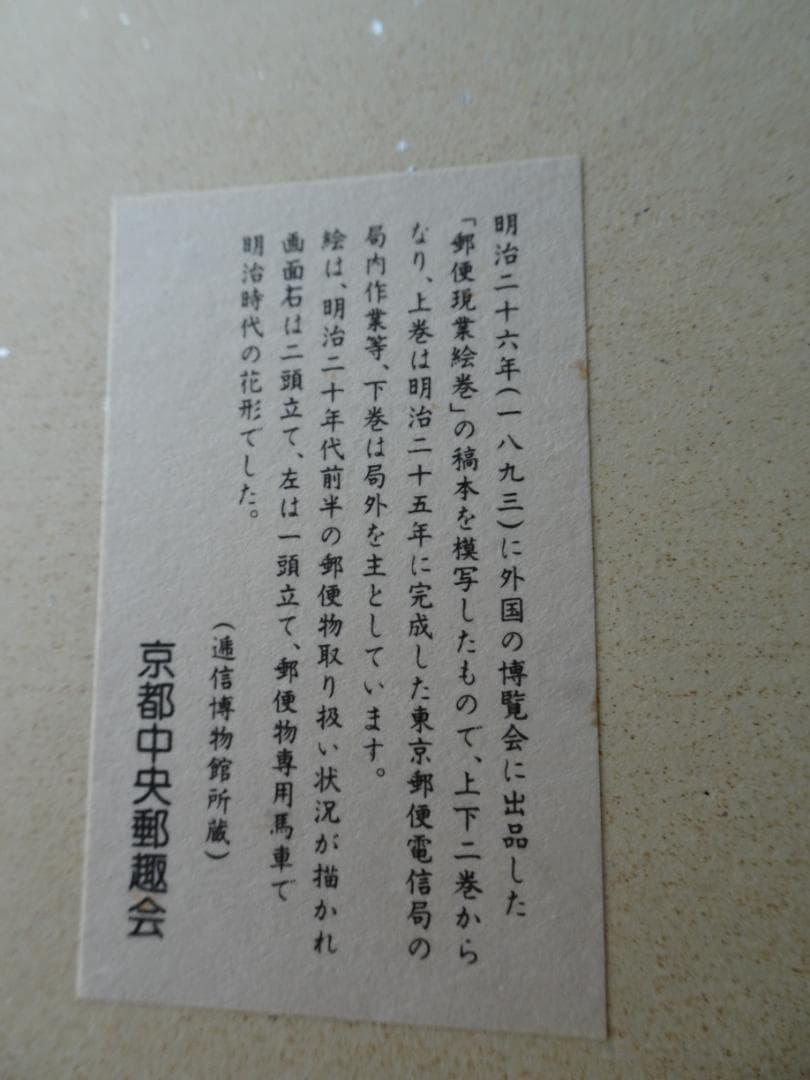 明治二十六年(一八九三)に外国の博覧会に出品した
「郵便現業絵巻」の稿本を模写したもので、上下二巻から
なり、上巻は明治二十五年に完成した東京郵便電信局の
局内作業等、下巻は局外を主としています。
絵は、明治二十年代前半の郵便物取り扱い状況が描かれ
画面右は二頭立て、左は一頭立て、郵便物専用馬車で
明治時代の花形でした。
(逓信博物館所蔵)
京都中央郵趣会